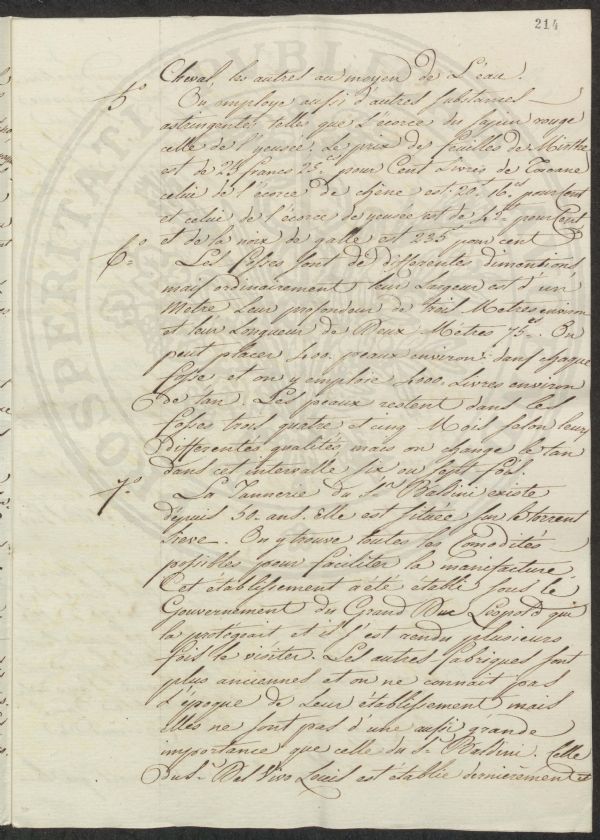 214
Cheval, les autres au moyen de L'eau.
5.° On employe aussi d'autres substances
astringentes telles que L'écorce du sapin rouge
celle de l'yeusée. Le prix des feuilles de Mirthe
est de 24 francs 2.cs pour Cent Livres de Toscane
celui de l'écorce de chêne est 20. 16.cs pour Cent
et celui de l'écorce de yeusée est de 42 pour Cent
et de la noix de galle est 235 pour cent
6.° Les fosses sont de differentes dimentions
mais ordinairement leur Largeur est d'un
Mètre Leur profondeur de trois Metres environ
et leur Longueur de Deux Mètres 75.cs. On
peut placer 400. peaux environ dans chaque
fosse et on y emploie 4000. Livres environ
de tan. Les peaux restent dans les
fosses trois quatre et cinq Mois selon leurs
differentes qualités mais on change le tan
dans cet intervalle six ou sept fois.
7.° La Tannerie du S.r Baldini existe
depuis 50. ans. Elle est située sur le torrent
On y trouve toutes les Comodités
possibles pour faciliter la manifacture
Cet établissement a été établi sous le
Gouvernement du Grand Duc Leopold qui
la protégeait et il s'est rendu plusieurs
fois le visiter. Les autres fabriques sont
plus anciennes et on ne connait pas
L'époque de Leur établissement mais
elles ne sont pas d'une aussi grande
importance que celle du S.r Baldini. Celle
du S.r Del Vivo Louis est établie dernièrement et
PROSPERITATI PUBLICAE